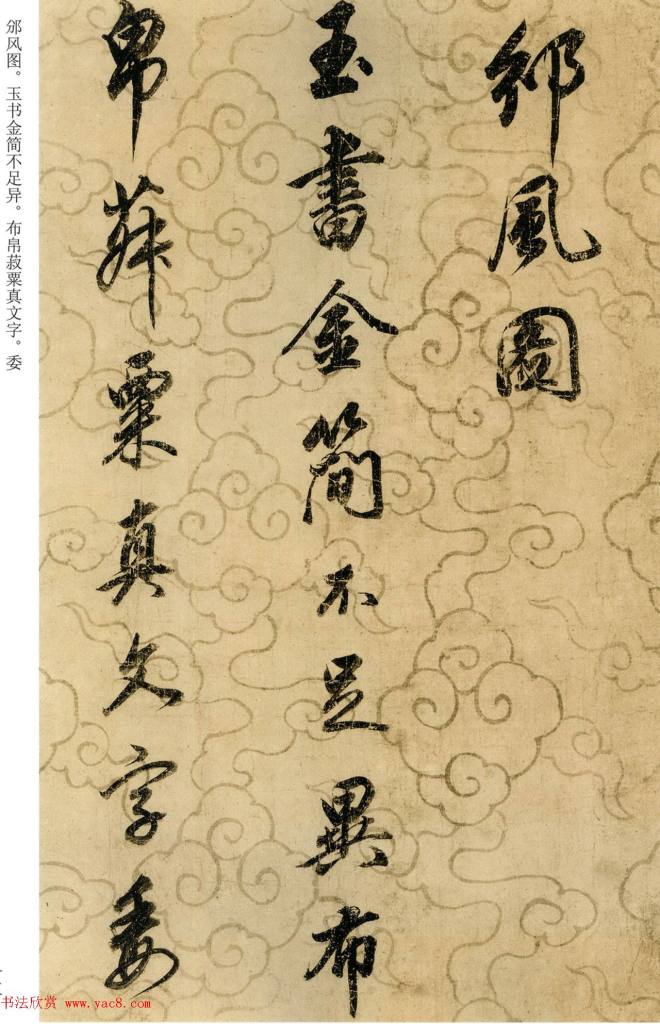 邠風圖
玉書金簡不足異布
帛菽粟真文字委
邠风图。玉书金简不足异。布帛菽粟真文字。委
书法欣赏 www.yac8.com